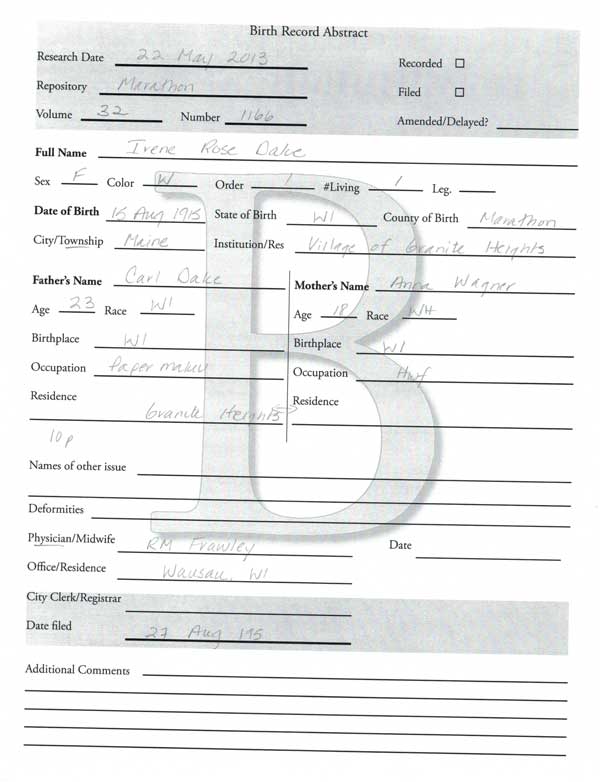 Birth Record Abstract
Research Date 22 May 2013 Recorded
Repository Marathon Filed
Volume 32 Number 1166 Amended/Delayed?
Full Name Irene Rose Dake
Sex F Color W Order 1 #Living 1 Leg.
Date of Birth 15 Aug 1915 State of Birth WI County of Birth Marathon
City/Township Maine Institution/Res Village of Granite Heights
Father's Name Carl Dake Mother's Name Anna Wagner
Age 23 Race WI Age 18 Race WH
Birthplace WI Birthplace WI
Occupation Paper maker Occupation Hwf
Residence Granite Heights Residence
10 p
Names of other issue
Deformities
Physician/Midwife RM Frawley Date
Office/Residence Wausau, WI
City Clerk/Registrar
Date filed 27 Aug 195
Additional Comments
B